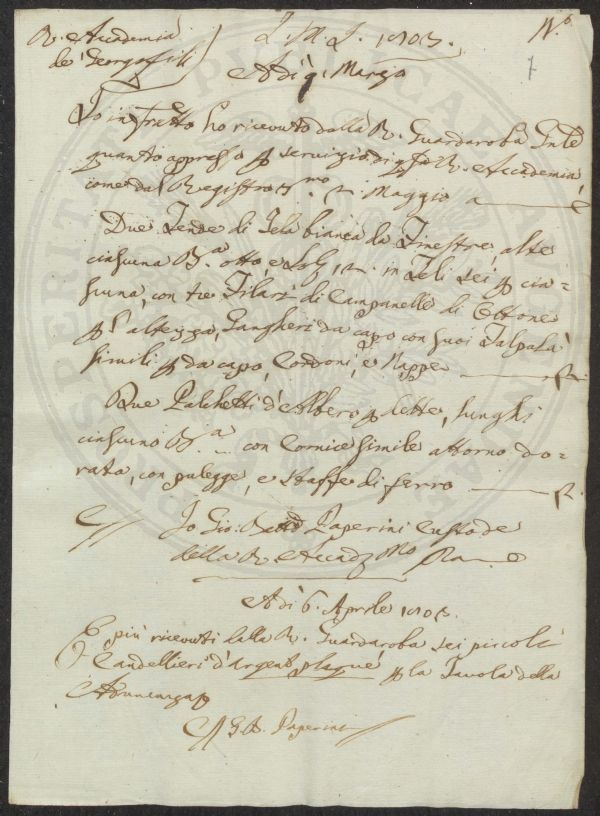 R. Accademia
de' Georgofili
N.°
7
Adì 9 Marzo
Io infratto ho ricevuto dalla R. Guardaroba Gnle
quanto appresso p servizio di R. Accademia
come dal Registro Maggio a
Due Tende di Tela bianca da Finestre, alte
ciascuna Ba otto, e in Teli sei p cia=
scuna, con tre Filari di Campanelle di Ottone
p l'altezza, Gangheri da capo con suoi Falpalà
simili p da capo, Cordoni, e Nappe
Due Palchetti d'Albero p dette, lunghi
ciascuno Ba con Cornice simile attorno do=
rata, con pulegge, e staffe di ferro
Io Gio. Batta Paperini Custode
della R. Accad.
Adì 6. Aprile
E più ricevuti dalla R. Guardaroba sei piccoli
Candellieri d'argent plaqué p la Tavola della
G B. Paperini